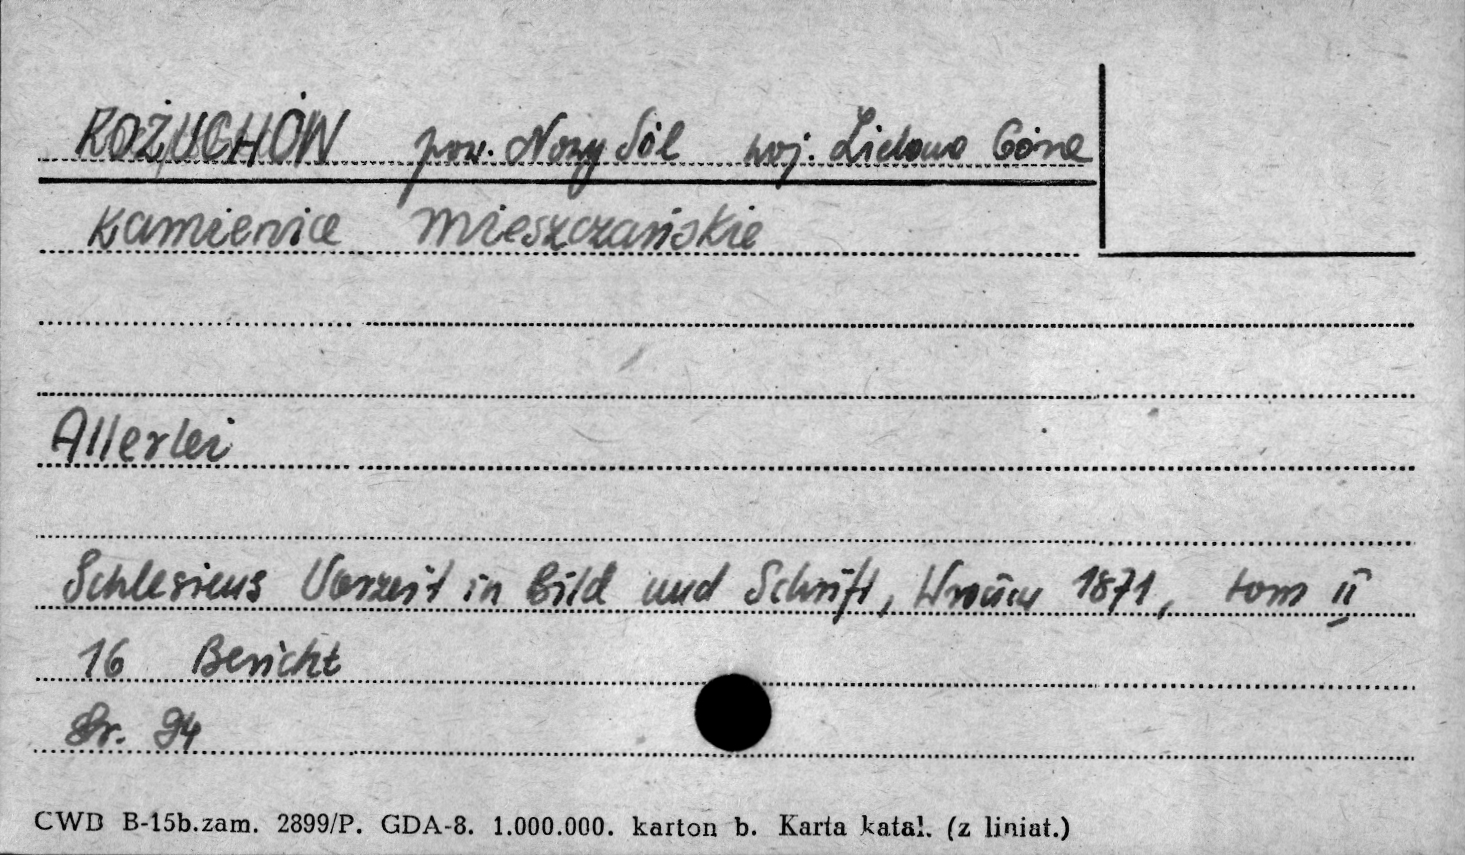 KOŻUCHÓW pow. Nowy Sól woj. Zielona Góra
Kamienice mieszczańskie
Allerlei
Schlesiens Vorzeit in Bild und Schrift, 1871, tom II
16 Bericht
Str. 94
CWD B-15b.zam. 2899/P. GDA-8. 1.000.000. karton b. Karta katal. (z liniat.)